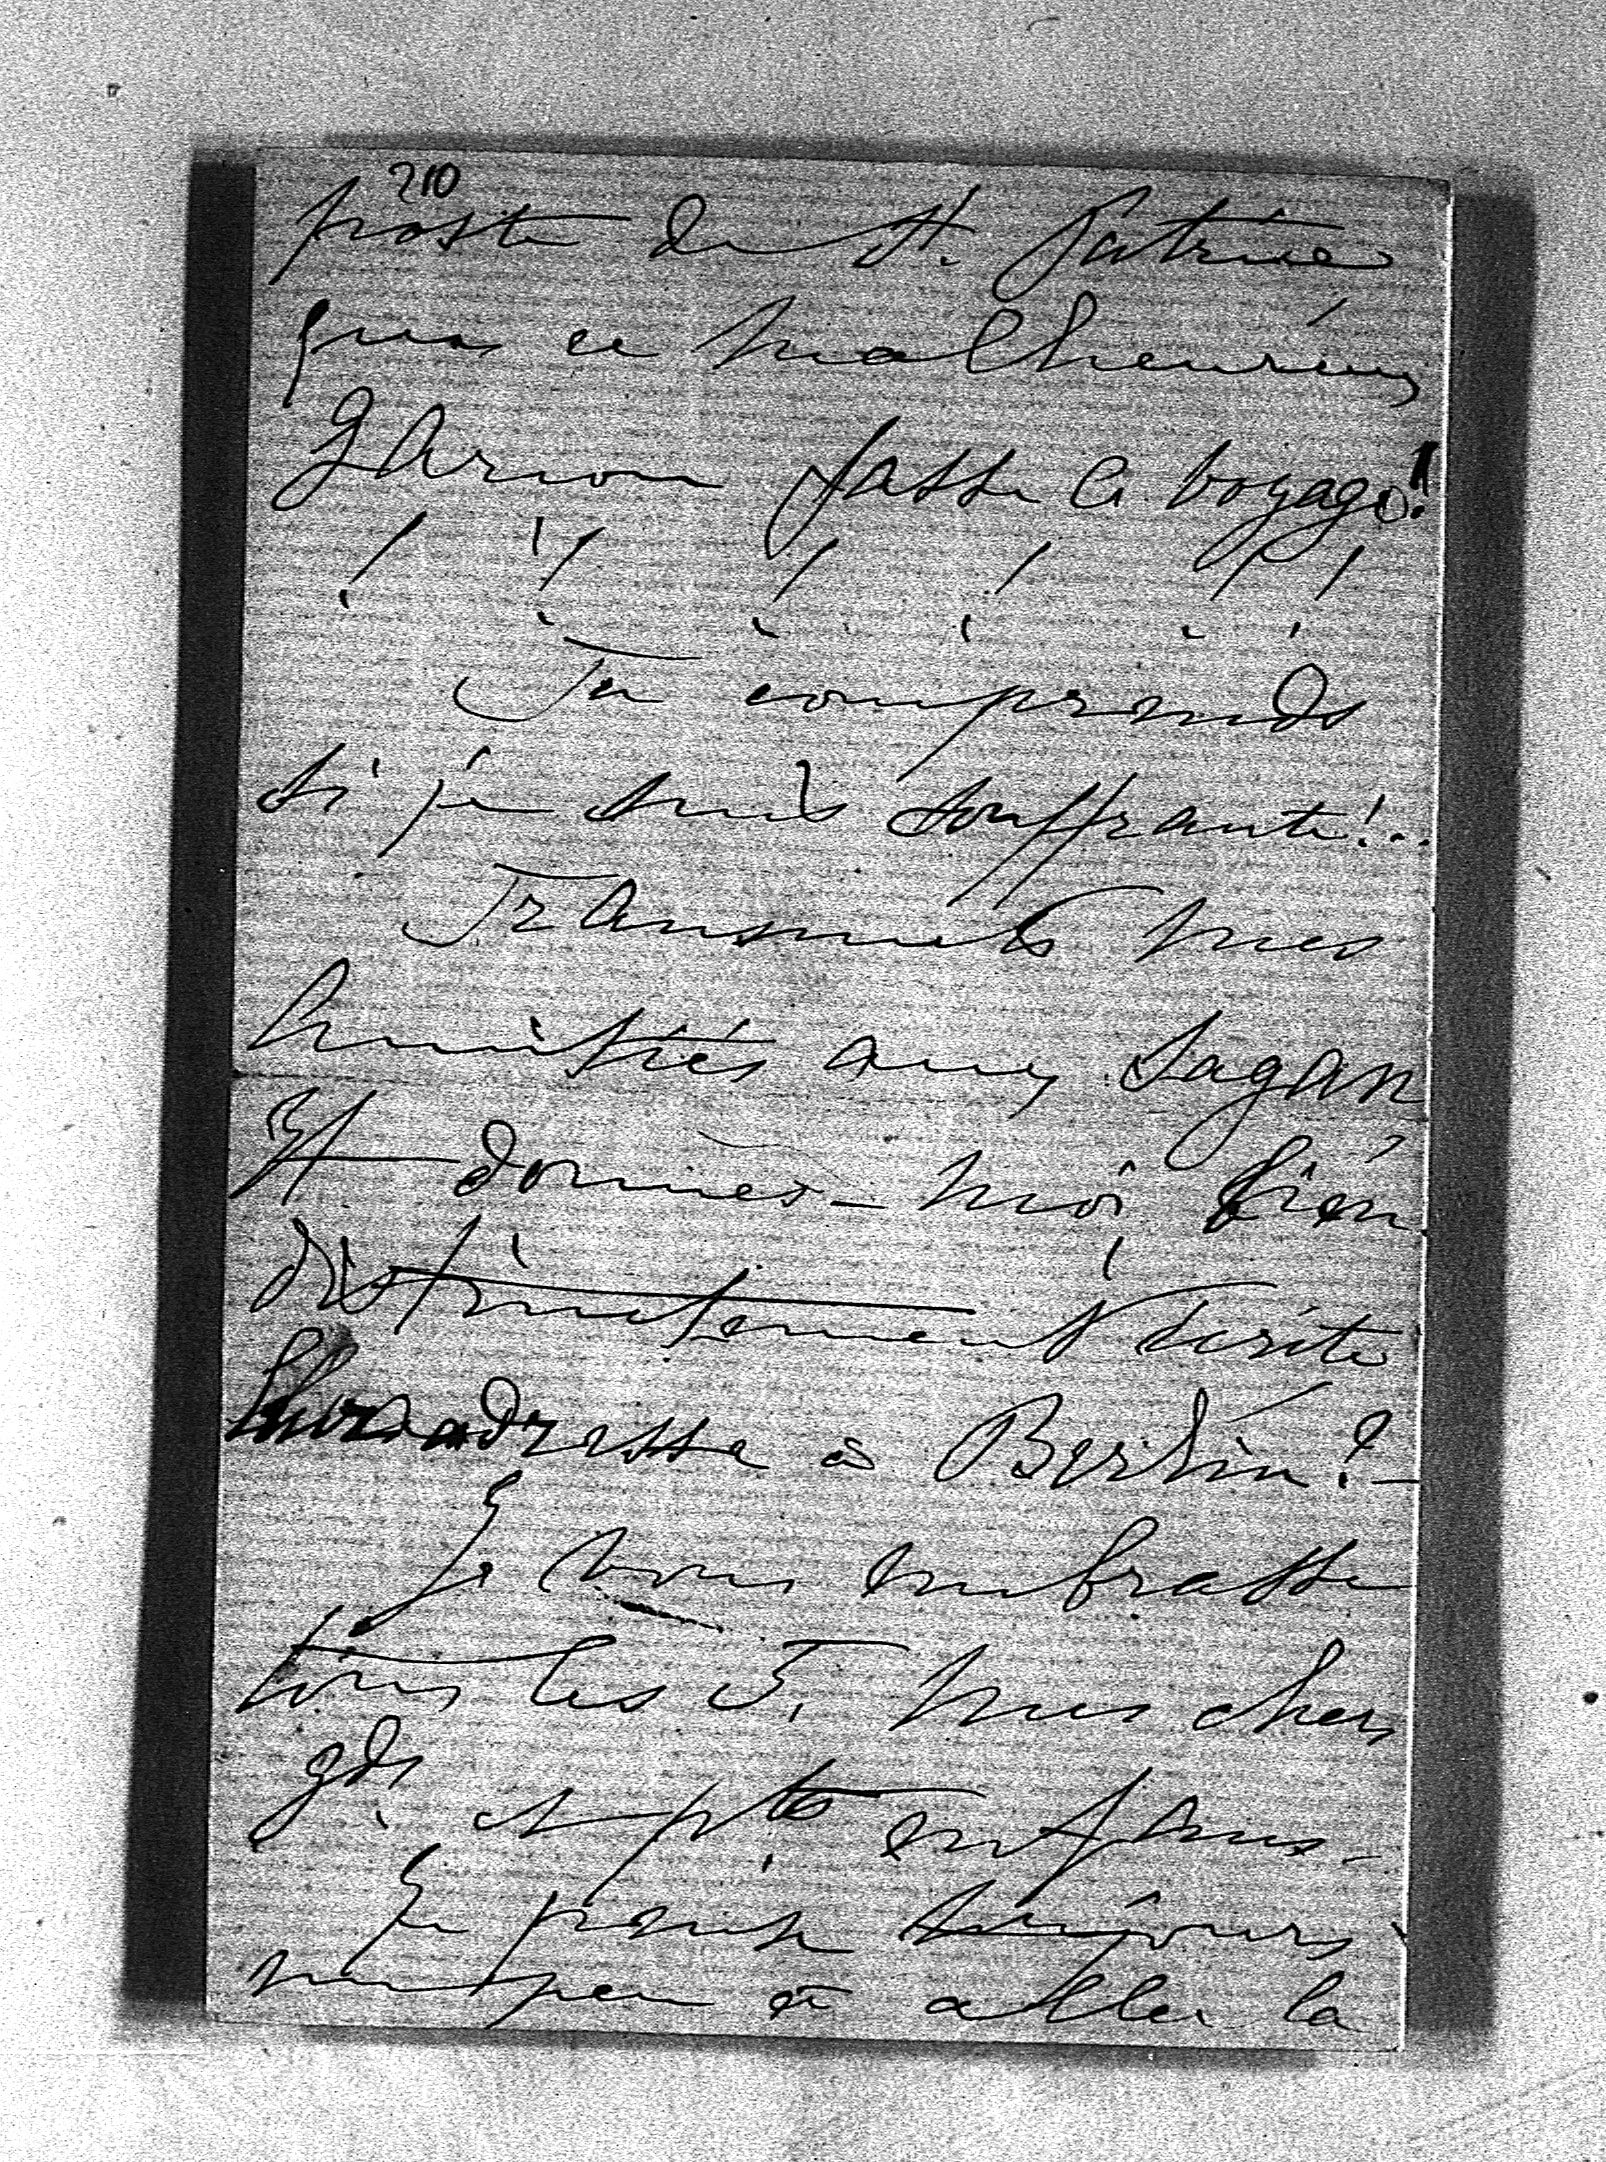 210
poste de St. Patrice
que ce malheureux
garçon fasse ce voyage!
! ! ! ! ! !
Tu comprends
si je suis souffrante!..
Transmets mes
Amitiés aux Sagan
Et donnes-moi bien
distinctement écrite
leur adresse à Berlin!-
Je vous embrasse
tous les 5, mes chers
gds et pts enfans-
Je pense toujours
un peu à aller la